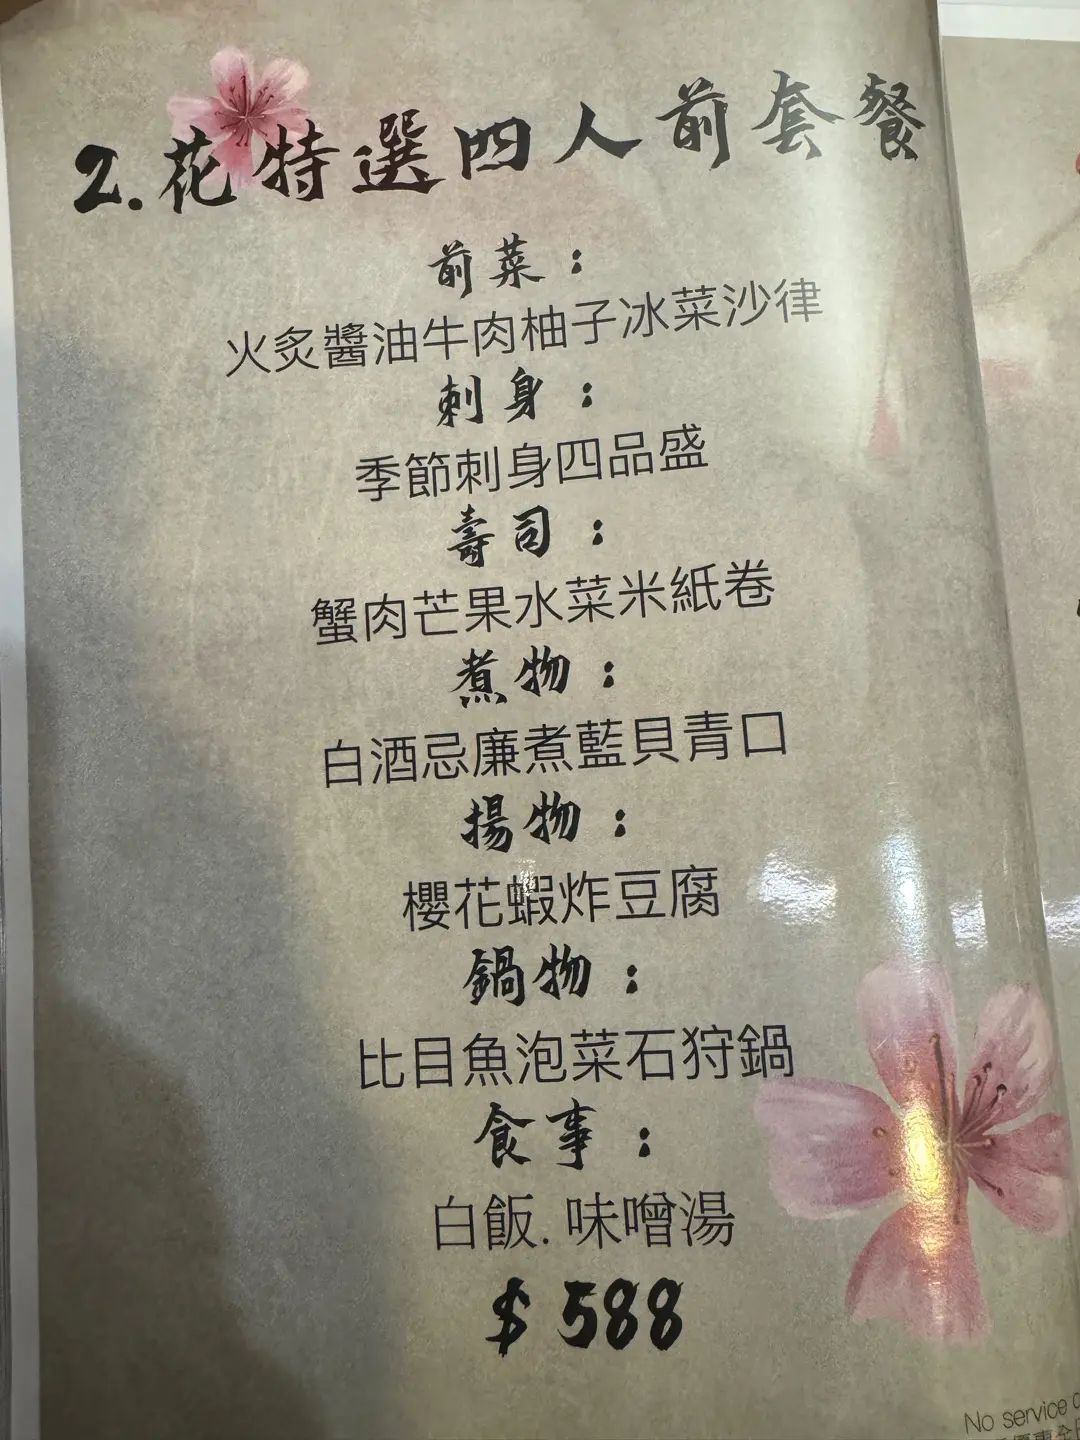 2.花特選四人前套餐
前菜：
火炙醬油牛肉柚子冰菜沙律
刺身：
季節刺身四品盛
壽司：
蟹肉芒果水菜米紙卷
煮物：
白酒忌廉煮藍貝青口
揚物：
櫻花蝦炸豆腐
鍋物：
比目魚泡菜石狩鍋
食事：
白飯. 味噌湯
$ 588
No service